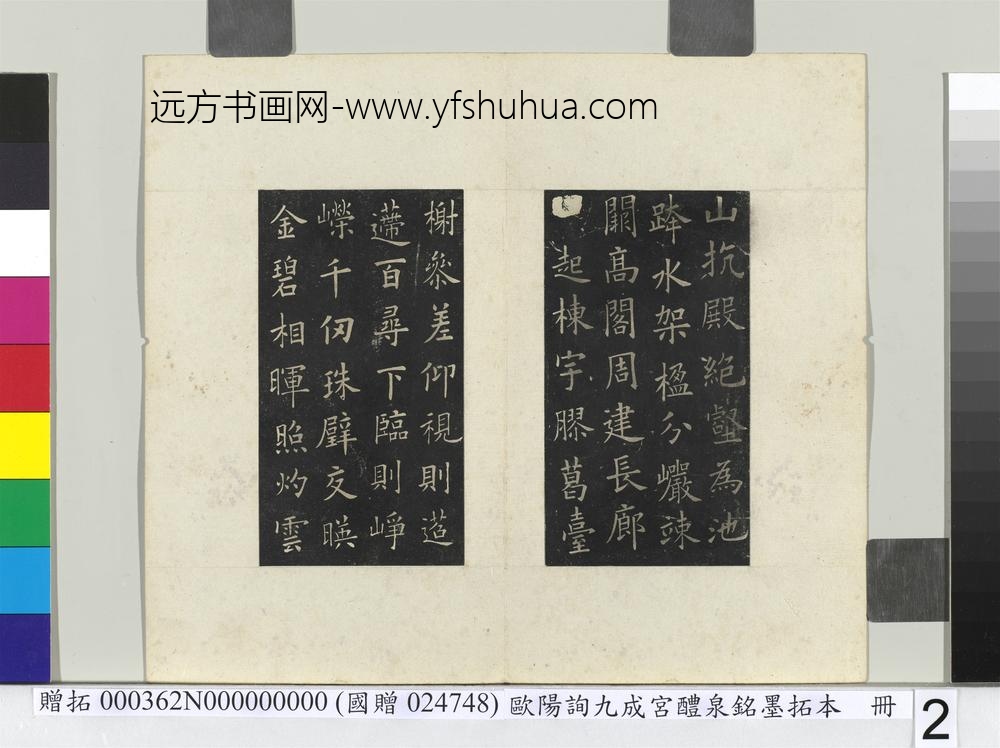 远方书画网-www.yfshuhua.com
山抗殿絕壑為池
跨水架楹分巖竦
闕高閣周建長廊
起棟宇膠葛臺
榭參差仰視則迢
遰百尋下臨則崢
嶸千仞珠璧交暎
金碧相暉照灼雲
贈拓 000362N000000000 (國贈 024748) 歐陽詢九成宮醴泉銘墨拓本 冊
2